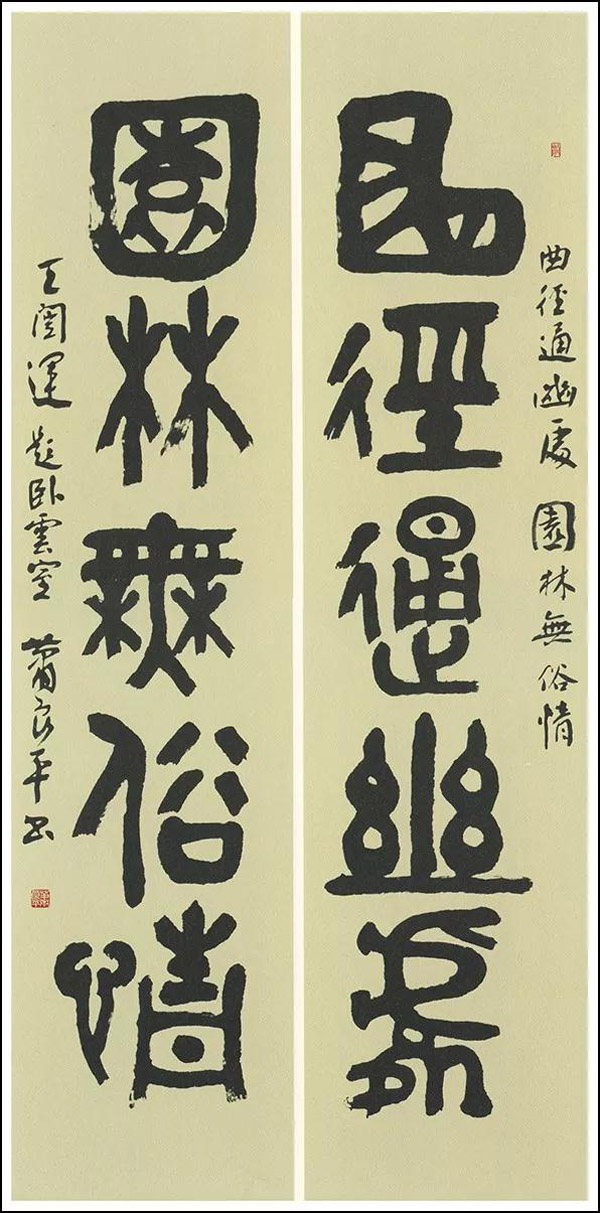 曲徑通幽處 園林無俗情
曲徑通幽處
園林無俗情
王闓運題臥雲室 蕭良平書